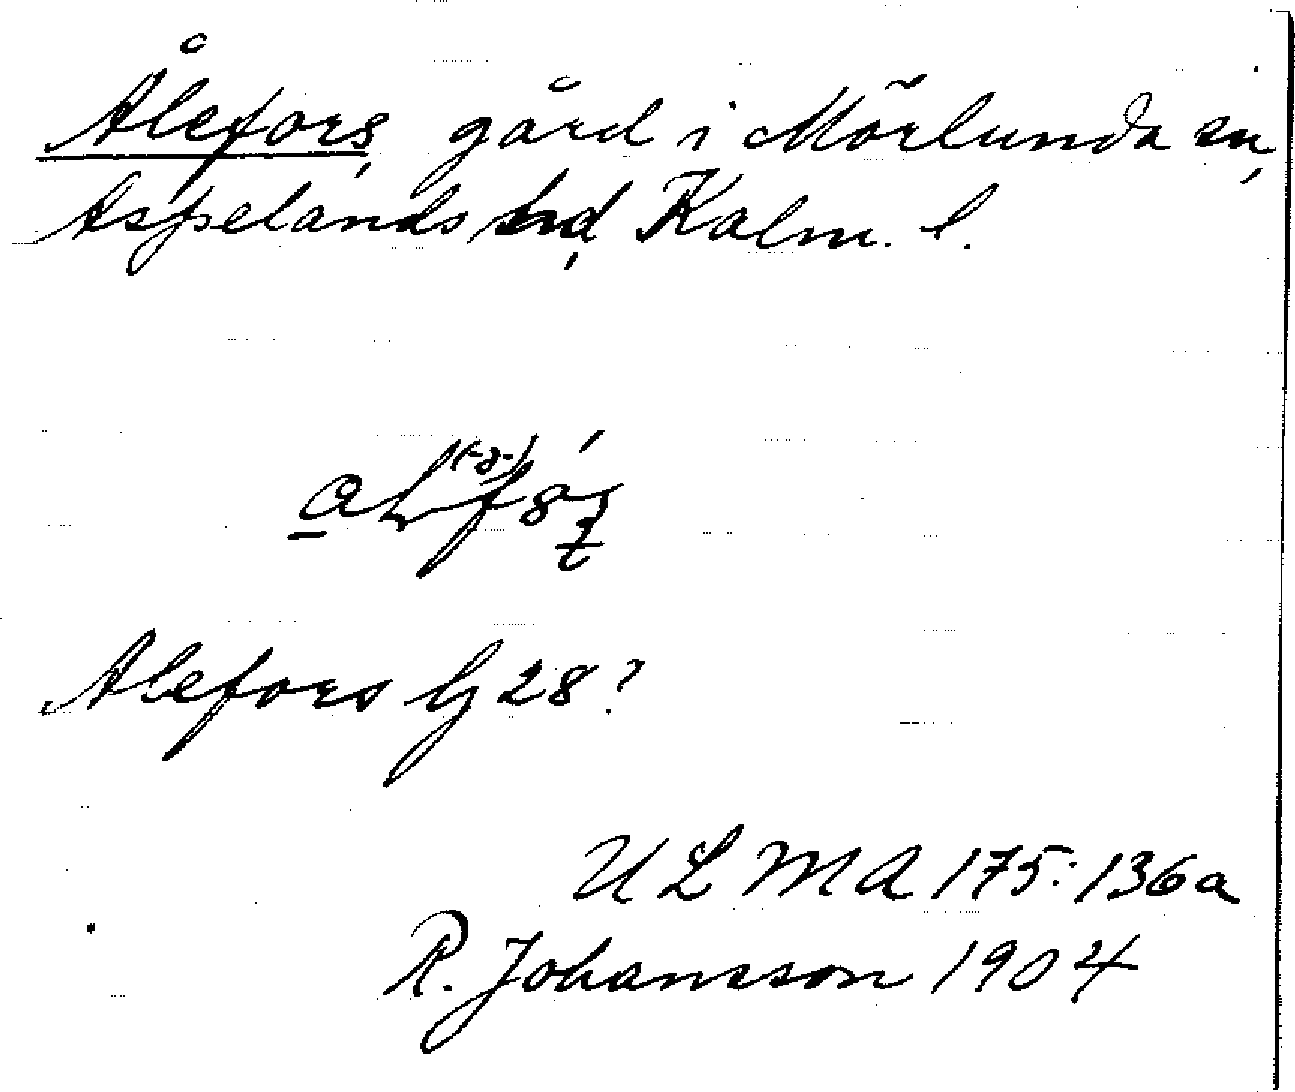 Ålefors, gård i Mörlunda sn,
Aspelands hd, Kalm. l.
Alefors G 28?
ULMA 175:136a
R. Johansson 1904